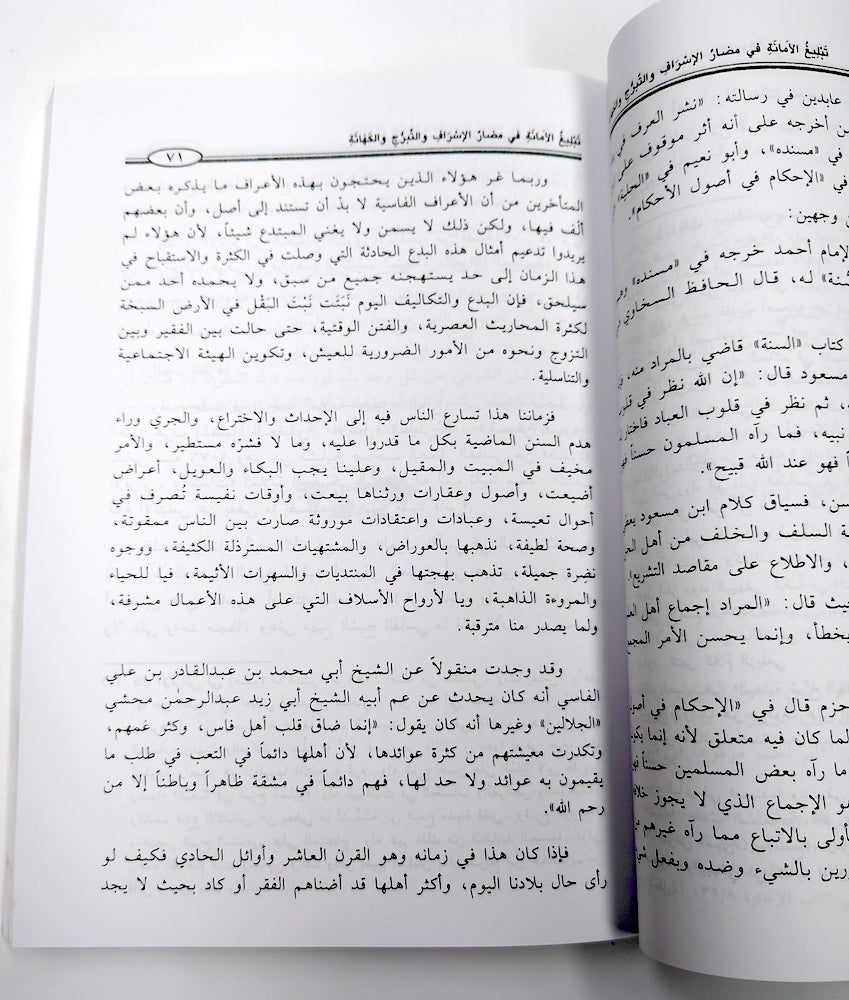 تَبْلِيغُ الأمَانَةِ في مضارّ الإسْرَافِ والتَّبرُّجِ والكَهَانَةِ
٧١
وربما غر هؤلاء الذين يحتجون بهذه الأعراف ما يذكره بعض
المتأخرين من أن الأعراف الفاسية لا بدّ أن تستند إلى أصل، وأن بعضهم
ألّف فيها، ولكن ذلك لا يسمن ولا يغني المبتدع شيئاً، لأن هؤلاء لم
يريدوا تدعيم أمثال هذه البدع الحادثة التي وصلت في الكثرة والاستقباح في
هذا الزمان إلى حد يستهجنه جميع من سبق، ولا يحمده أحد ممن
سيلحق، فإن البدع والتكاليف اليوم نَبَتَت نَبْتَ البَقْل في الأرض السبخة
لكثرة المحاريث العصرية، والفتن الوقتية، حتى حالت بين الفقير وبين
التزوج ونحوه من الأمور الضرورية للعيش، وتكوين الهيئة الاجتماعية
والتناسلية.
فزماننا هذا تسارع الناس فيه إلى الإحداث والاختراع، والجري وراء
هدم السنن الماضية بكل ما قدروا عليه، وما لا فشرّه مستطير، والأمر
مخيف في المبيت والمقيل، وعلينا يجب البكاء والعويل، أعراض
أضيعت، وأصول وعقارات ورثناها بيعت، وأوقات نفيسة تُصرف في
أحوال تعيسة، وعبادات واعتقادات موروثة صارت بين الناس ممقوتة،
وصحة لطيفة، نذهبها بالعوراض، والمشتهيات المسترذلة الكثيفة، ووجوه
نضِرة جميلة، تذهب بهجتها في المنتديات والسهرات الأثيمة، فيا للحياء
والمروءة الذاهبة، ويا لأرواح الأسلاف التي على هذه الأعمال مشرفة،
ولما يصدر منا مترقبة.
وقد وجدت منقولاً عن الشيخ أبي محمد بن عبدالقادر بن علي
الفاسي أنه كان يحدث عن عم أبيه الشيخ أبي زيد عبدالرحمٰن محشي
«الجلالين» وغيرها أنه كان يقول: «إنما ضاق قلب أهل فاس، وكثر غمهم،
وتكدرت معيشتهم من كثرة عوائدها، لأن أهلها دائماً في التعب في طلب ما
يقيمون به عوائد ولا حد لها، فهم دائماً في مشقة ظاهراً وباطناً إلا من
رحم الله».
فإذا كان هذا في زمانه وهو القرن العاشر وأوائل الحادي فكيف لو
رأى حال بلادنا اليوم، وأكثر أهلها قد أضناهم الفقر أو كاد بحيث لا يجد
تَبْلِيغُ الأمَانَةِ في مضارّ الإسْرَافِ والتَّبرُّجِ
عابدين في رسالته: «نشر العرف في
من أخرجه على أنه أثر موقوف على
في «مسنده»، وأبو نعيم في «الحلية»
في «الإحكام في أصول الأحكام».
وجهين:
الإمام أحمد خرجه في «مسنده»
له، قال الحافظ السخاوي
كتاب «السنة» قاضي بالمراد منه،
مسعود قال: «إن الله نظر في
، ثم نظر في قلوب العباد فاختار
نبيه، فما رآه المسلمون حسناً
فهو عند الله قبيح».
فسياق كلام ابن مسعود
السلف والخلف من أهل
، والاطلاع على مقاصد التشريع
قال: «المراد إجماع أهل
وإنما يحسن الأمر
حزم قال في «الإحكام في
لما كان فيه متعلق لأنه إنما
ما رآه بعض المسلمين حسناً
الإجماع الذي لا يجوز
بالاتباع مما رآه غيرهم
بالشيء وضده وبفعل